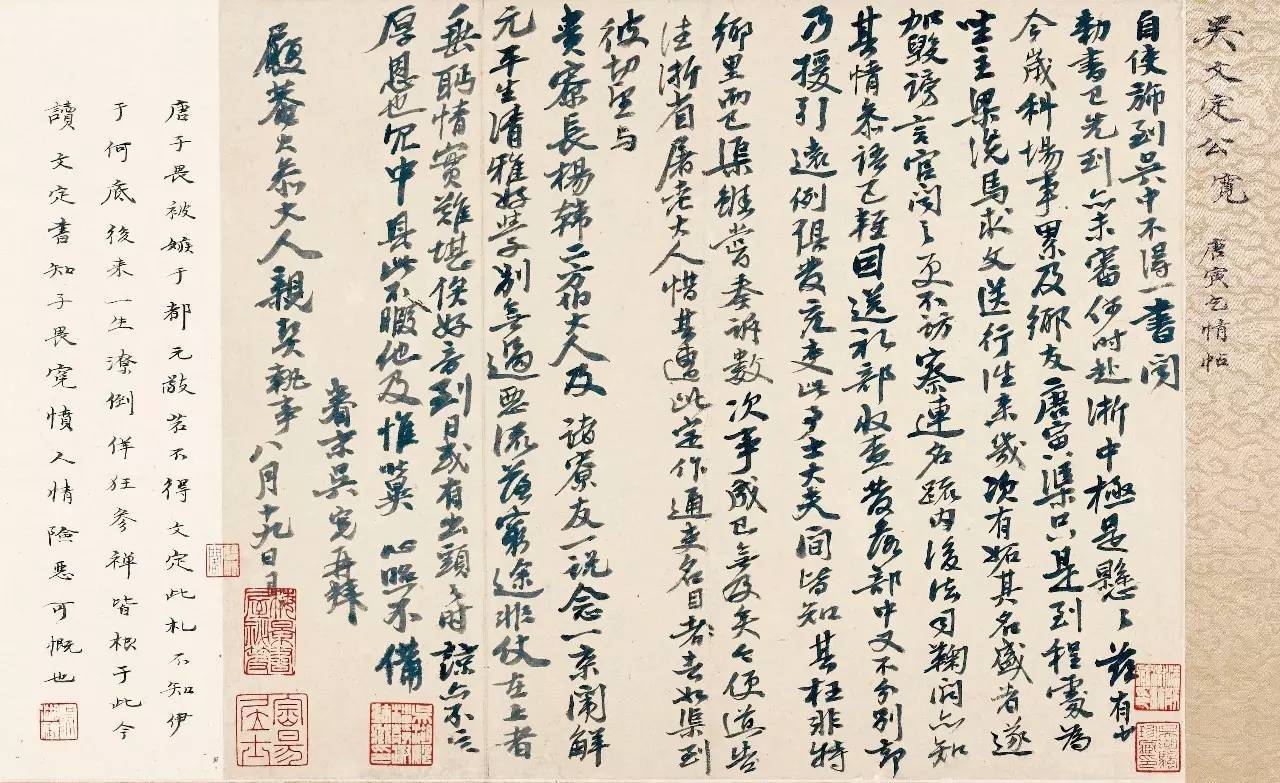 吳文定公寬 唐寅乞情帖
自使旆到吳中不得一書聞
勑書已先到亦未審何時赴浙中極是懸懸茲有少
今歲科場事累及鄉友唐寅渠只是到程處為
坐主梁洗馬求文送行往來幾次有妬其名盛者遂
加毀謗言官聞之更不訪察連名疏內後法司鞫問亦知
其情參語已輕因送禮部收查發落部中又不分別卻
乃援引遠例俱發充吏此事士大夫間皆知其枉非特
鄉里而已渠雖嘗奏訴數次事成已無及矣今便道告
往浙省屠老大人惜其遭此定作通吏名目者去如渠到
彼切望與
貴寮長楊韓二方伯大人及諸寮友一說念一京闈解
元平生清雅好學別無過惡流落窮途非仗在上者
垂眄情實難堪俟好音到日或有出頭之時諒亦不忘
厚恩也冗中具此不暇他及惟冀心照不備
眷末吳寬再拜
履菴大參大人親契執事 八月十九日具
唐子畏被嫉于都元敬若不得文定此札不知伊
于何底後來一生潦倒佯狂參禪皆根于此今
讀文定書知子畏寃憤人情險惡可慨也